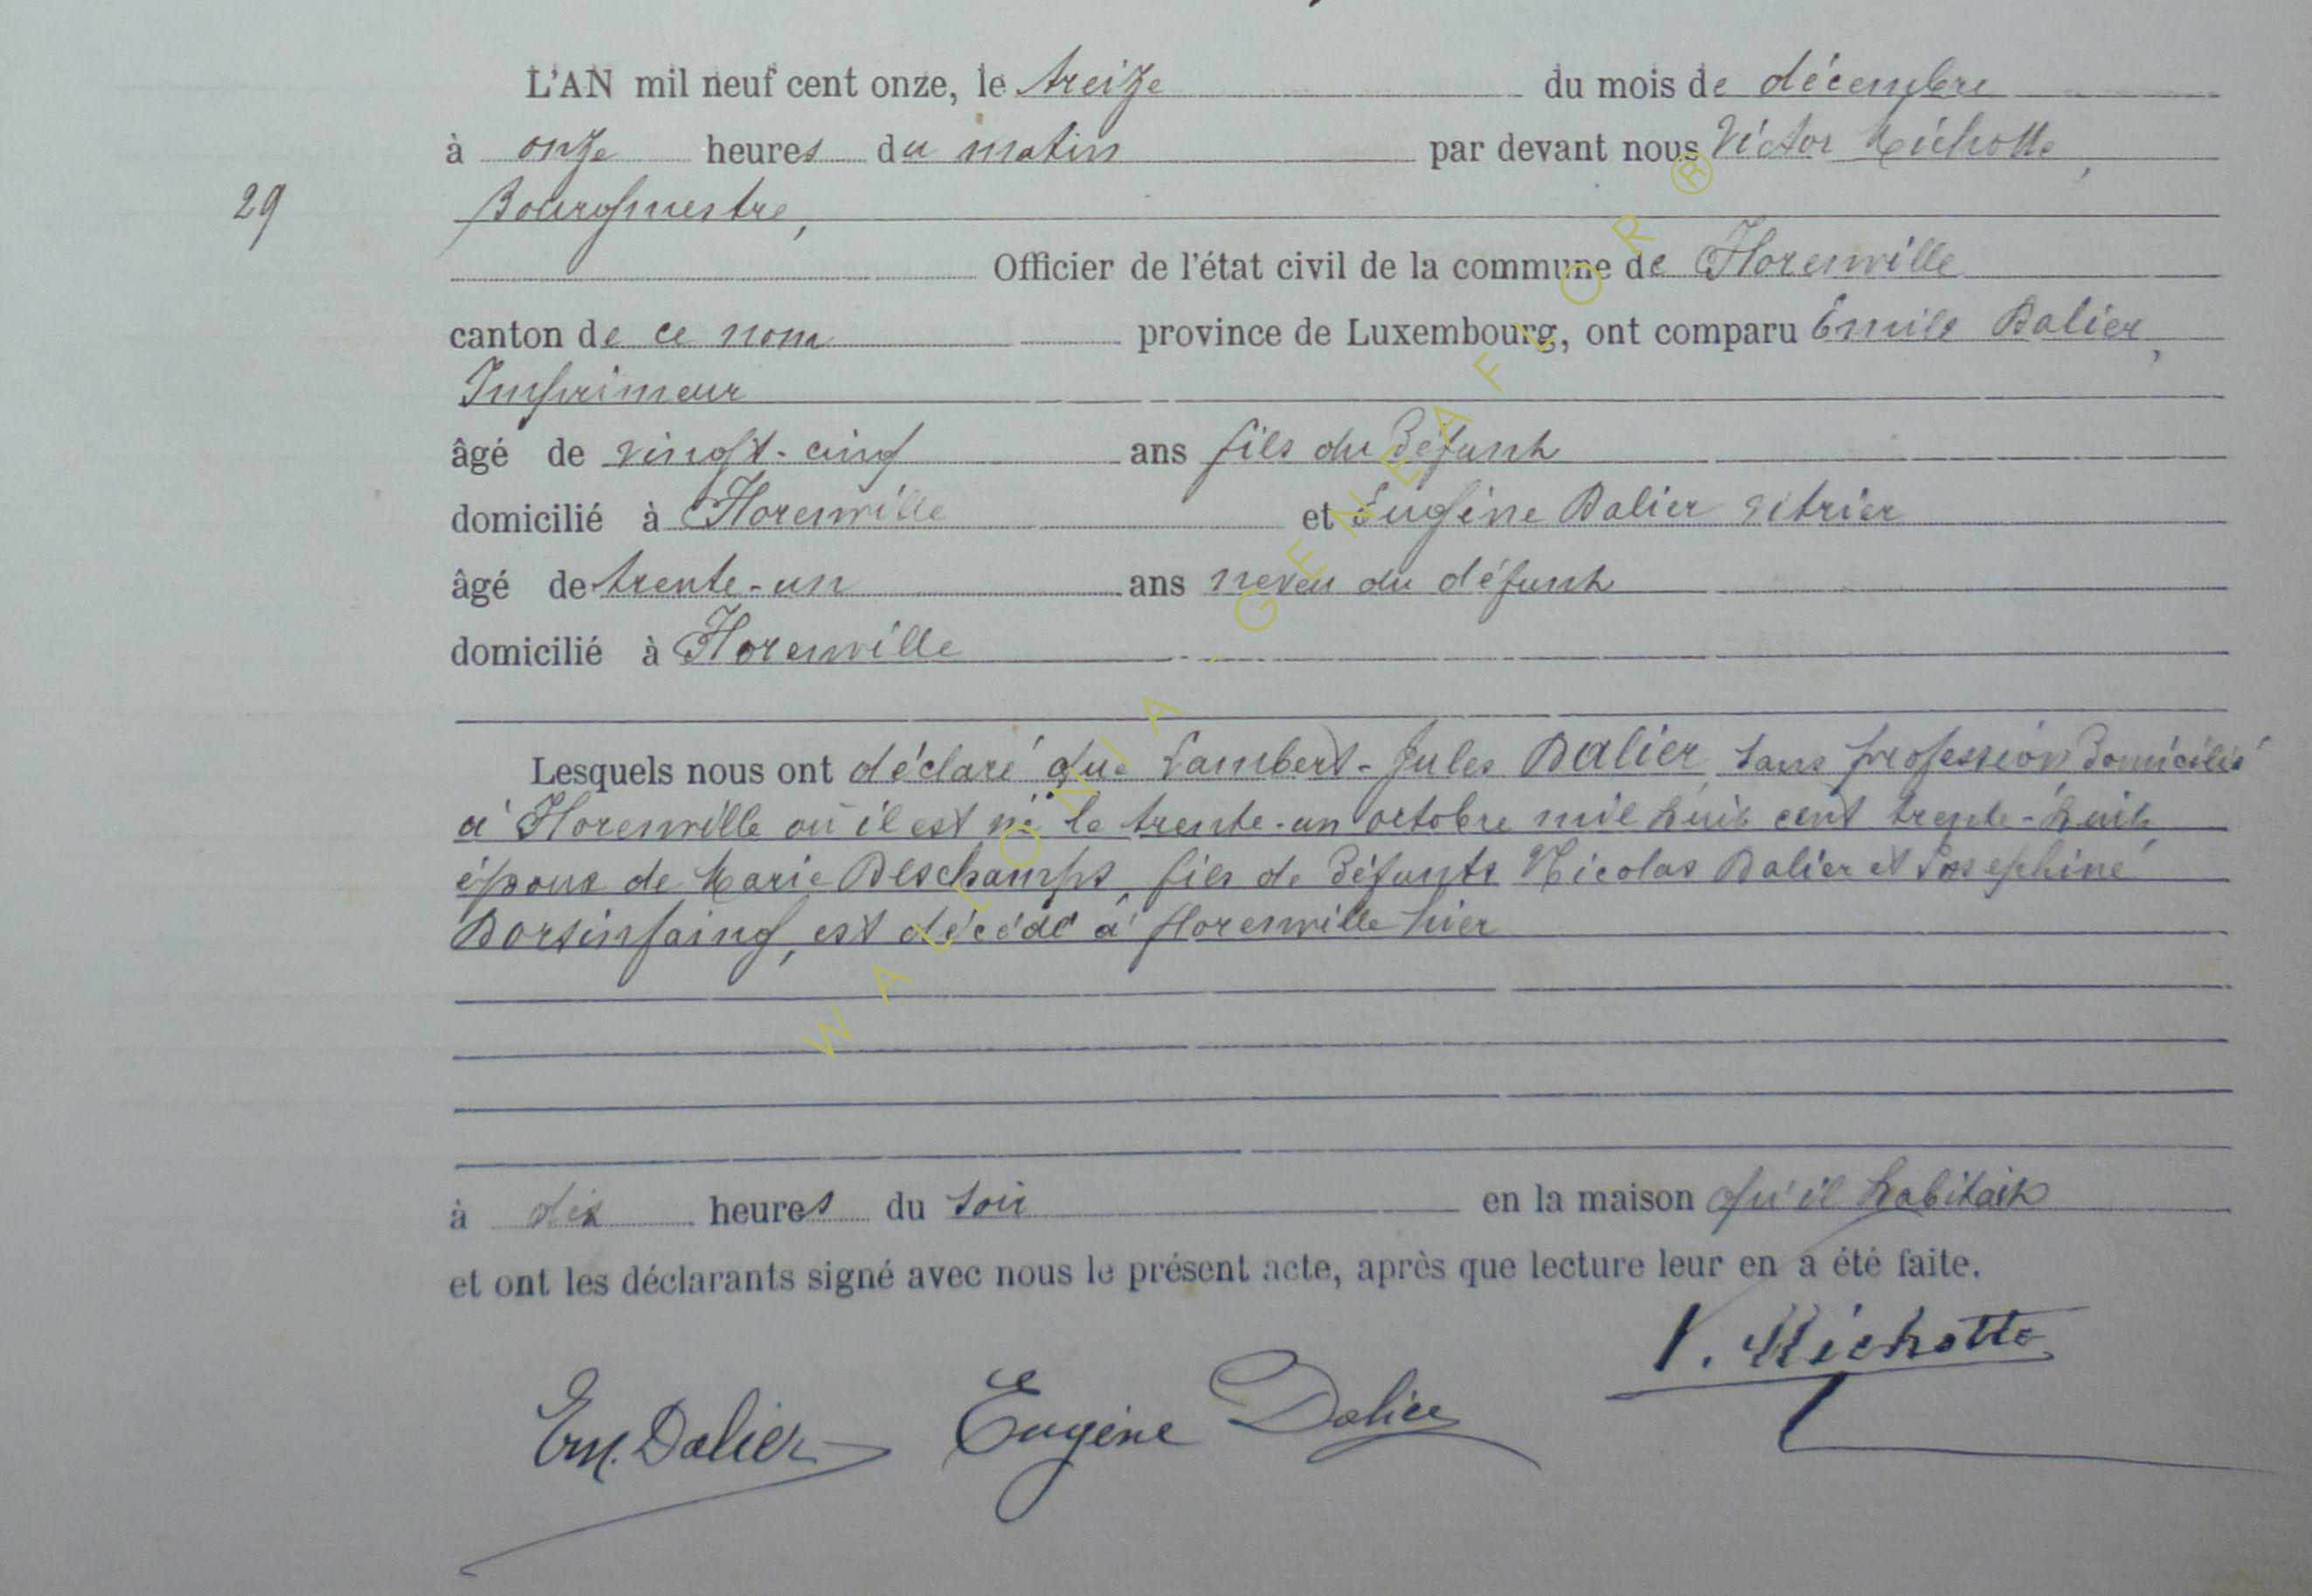 L'AN mil neuf cent onze, le treize du mois de décembre
à onze heures du matin par devant nous Victor Michotte,
29 Bourgmestre,
Officier de l'état civil de la commune de Florenville
canton de ce nom province de Luxembourg, ont comparu Emile Dalier,
Imprimeur
âgé de vingt-cinq ans fils du défunt
domicilié à Florenville et Eugène Dalier vitrier
âgé de trente-un ans neveu du défunt
domicilié à Florenville
Lesquels nous ont déclaré que Lambert-Jules Dalier sans profession domicilié
à Florenville où il est né le trente-un octobre mil huit cent trente-huit,
époux de Marie Deschamps, fils de défunts Nicolas Dalier et Josephine
Dorsinfaing, est décédé à Florenville hier
à dix heures du soir en la maison qu'il habitait
et ont les déclarants signé avec nous le présent acte, après que lecture leur en a été faite.
V. Michotte
Em. Dalier Eugène Dalier
WALLONIA - GENEAFLOR ®